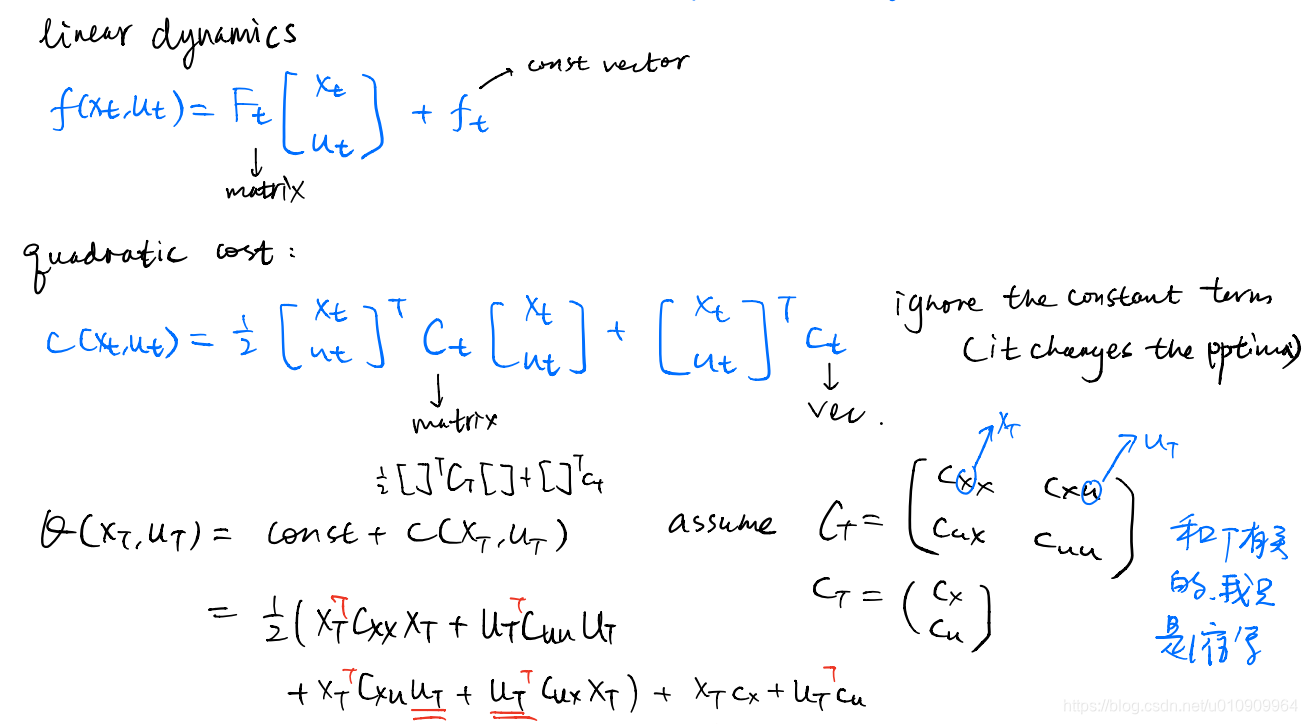 linear dynamics
f(xt,ut) = Ft [xt ut] + ft → const vector
↓
matrix
quadratic cost:
c(xt,ut) = 1/2 [xt ut]^T Ct [xt ut] + [xt ut]^T ct
ignore the constant term
(it changes the optima)
↓ matrix
↓ vec.
1/2 []^T CT [] + []^T ct
xT
uT
Q(xT,uT) = const + c(xT,uT)
assume CT = (Cxx Cxu
Cux Cuu)
cT = (cx
cu)
和T有关
的,我只
是
= 1/2 (xT^T Cxx xT + uT^T Cuu uT
+ xT^T Cxu uT + uT^T Cux xT) + xT cx + uT^T cu
https://blog.csdn.net/u010909964